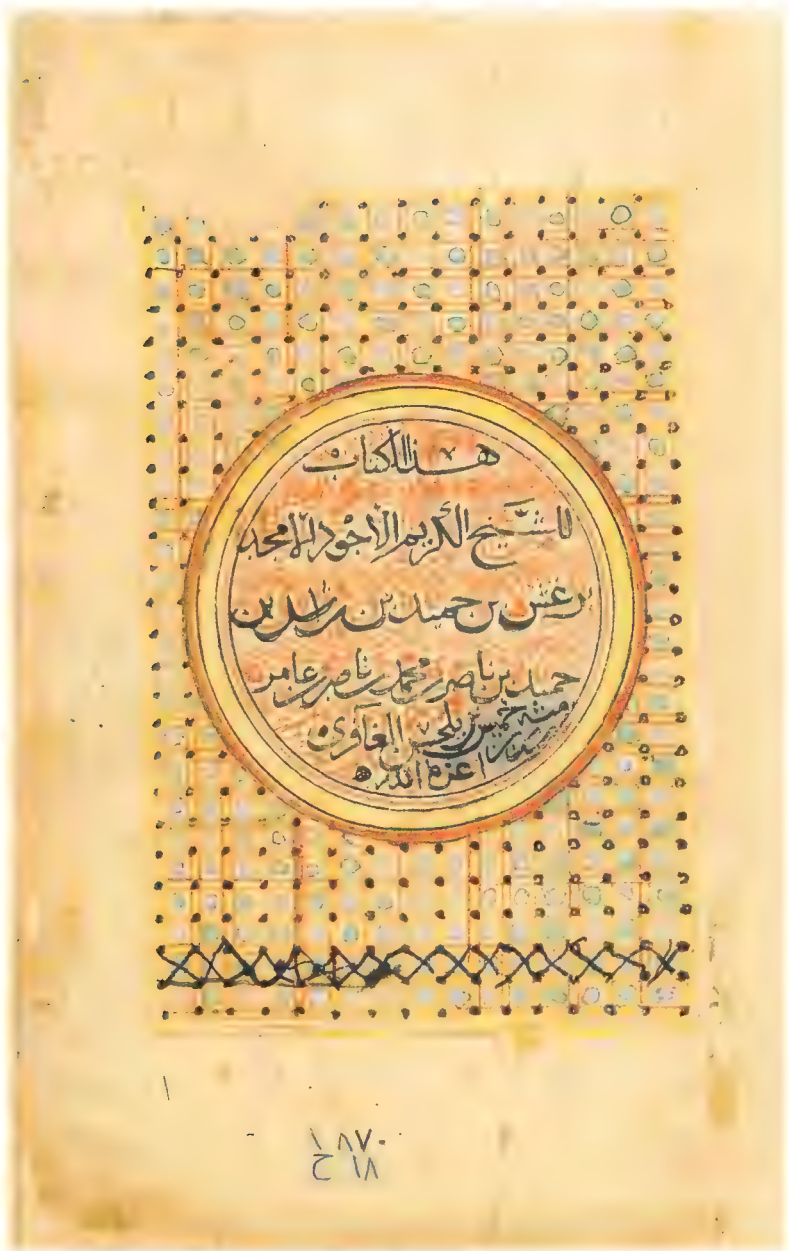 هذا الكتاب
للشيخ الكريم الأجود الأمجد
بن حميد بن راشد بن
حميد بن ناصر بن محمد بن ناصر بن عامر
خميس بن بلحسن الغافري
أعزه الله
١
١٨٧٠
١٨ ح